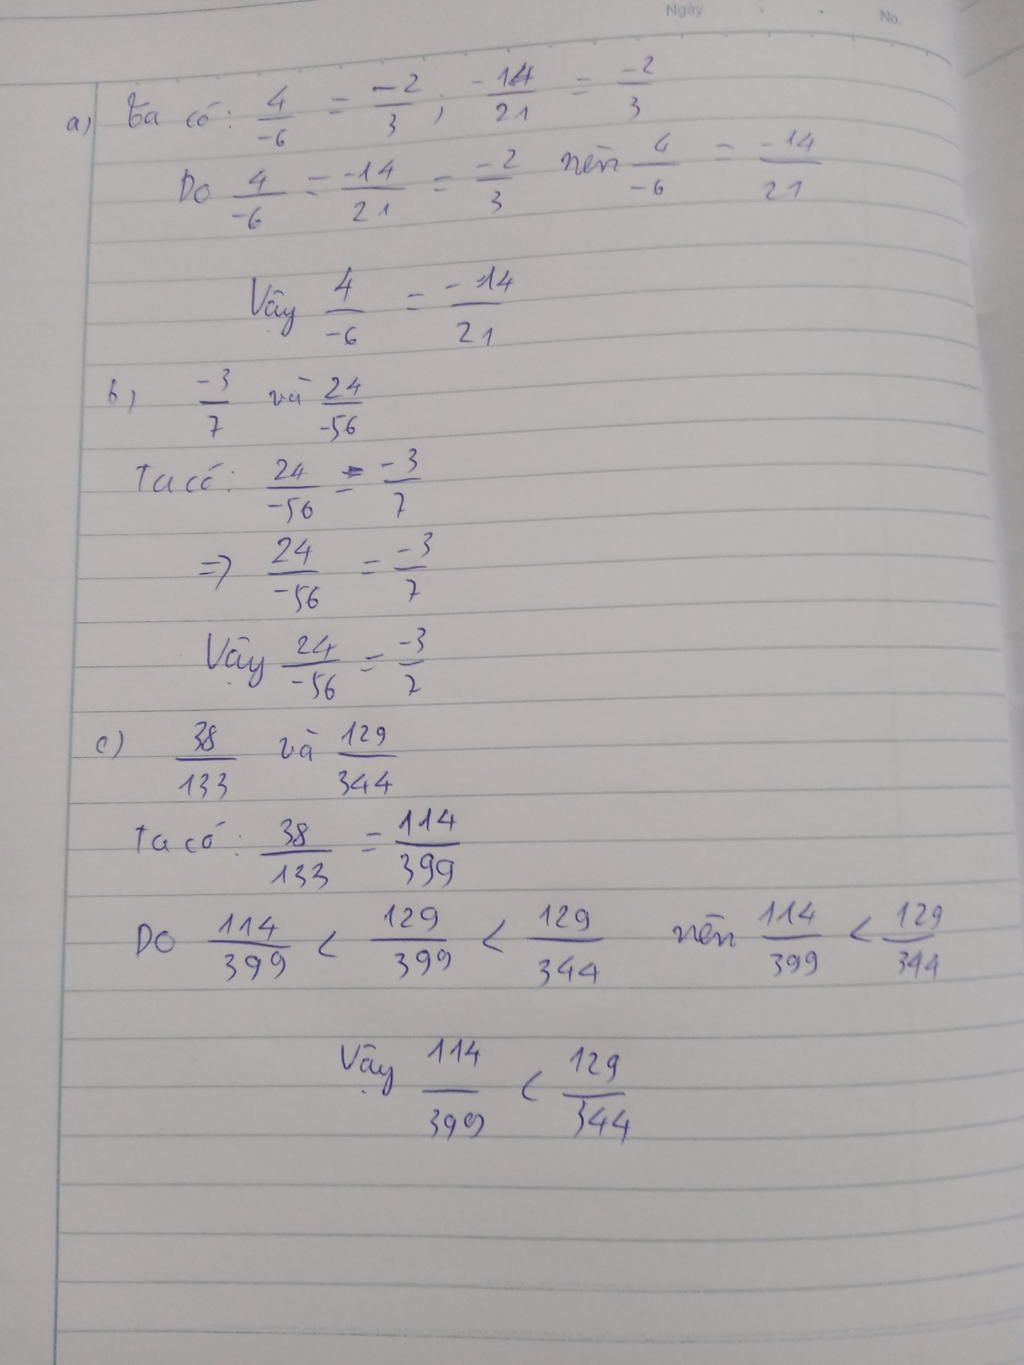 Ngày No.
a) Ta có: 4/-6 = -2/3; -14/21 = -2/3
Do 4/-6 = -14/21 = -2/3 nên 4/-6 = -14/21
Vậy 4/-6 = -14/21
b) -3/7 và 24/-56
Ta có: 24/-56 = -3/7
=> 24/-56 = -3/7
Vậy 24/-56 = -3/7
c) 38/133 và 129/344
Ta có: 38/133 = 114/399
Do 114/399 < 129/399 < 129/344 nên 114/399 < 129/344
Vậy 114/399 < 129/344